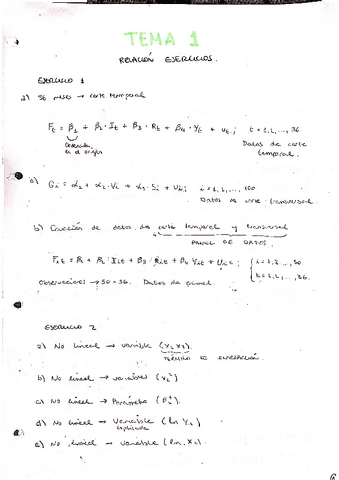 TEMA 1
RELACIÓN EJERCICIOS.
EJERCICIO 1
36 meses → corte temporal
F_t = β_1 + β_2 · I_t + β_3 · R_t + β_4 · Y_t + u_t ; t = 1, 2, ..., 36.
Datos de corte
en el origen
temporal.
a) G_i = α_1 + α_2 · V_i + α_3 · S_i + u_i ; i = 1, 2, ..., 100
Datos de corte transversal
b) de datos de corte temporal y transversal
PANEL DE DATOS.
t = 1, 2, ..., 36.
Observaciones → 50 · 36. Datos de panel.
EJERCICIO 2
a) No lineal → variable (X_2 X_3).
TÉRMINO DE INTERACCIÓN.
b) No lineal → variables
c) No lineal → Parámetro
d) No lineal → Variable
explicada
e) No lineal → variable